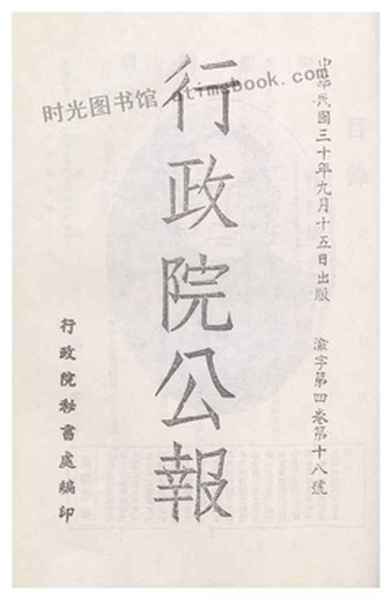 中華民國三十年九月十五日出版 渝字第四卷第十八號
行政院公報
行政院秘書處編印
时光图书馆 otimebook.com